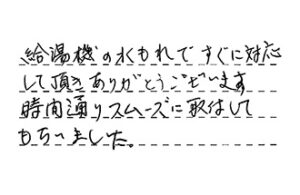 給湯機の水もれですぐに対応
して頂きありがとうございます
時間通りスムーズに取付して
もらいました。